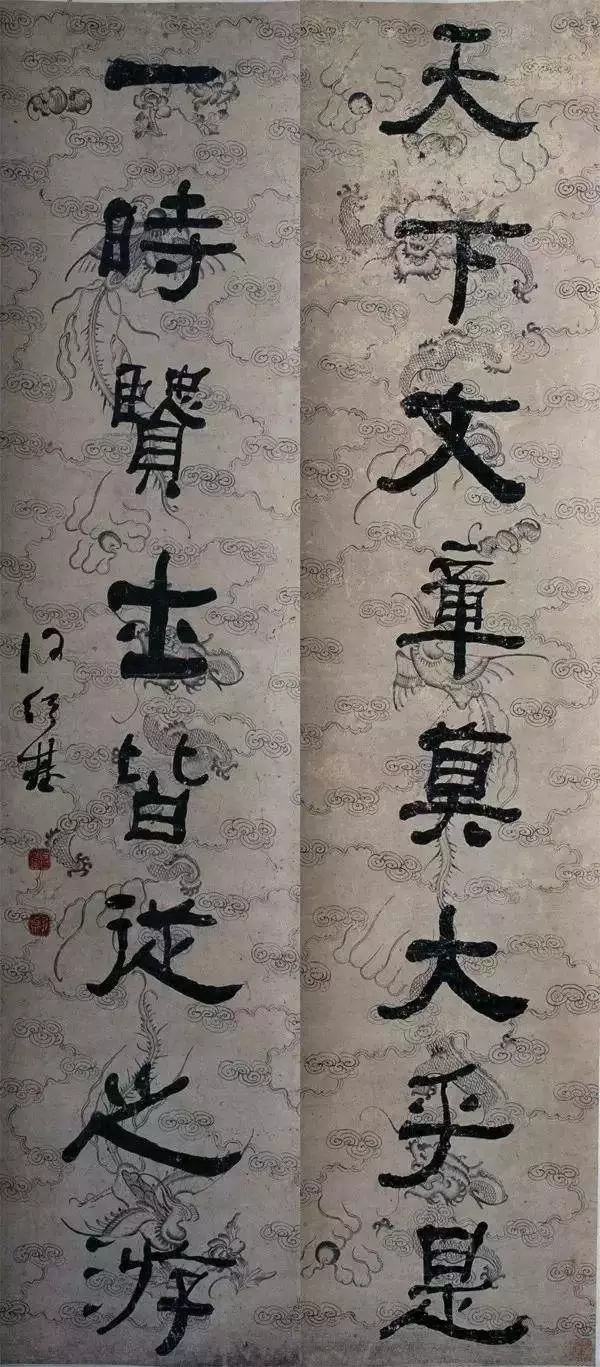 天下文章莫大乎是
一時賢士皆從之游
何紹基